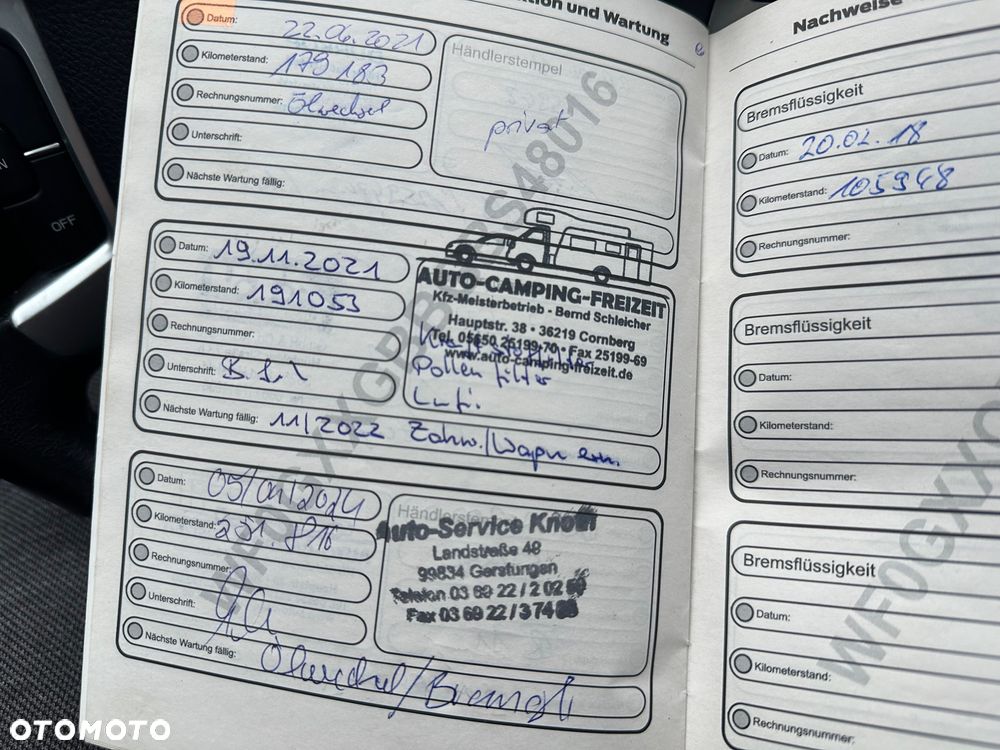 ion und Wartung
Datum: 22.06.2021
Kilometerstand: 179 183
Rechnungsnummer: Ölwechsel
Unterschrift:
Nächste Wartung fällig:
Händlerstempel
privat
Datum: 19.11.2021
Kilometerstand: 191053
Rechnungsnummer:
Unterschrift:
Nächste Wartung fällig: 11/2022 Zahnr./Wapu ern.
AUTO-CAMPING-FREIZEIT
Kfz-Meisterbetrieb - Bernd Schleicher
Hauptstr. 38 • 36219 Cornberg
Tel. 05650 25199-70 • Fax 25199-69
www.auto-camping-freizeit.de
Pollenfilter
Lufi.
Datum: 05/01/2024
Kilometerstand:
Rechnungsnummer:
Unterschrift:
Nächste Wartung fällig:
Ölwechsel/
Auto-Service Knoth
Landstraße 48
99834 Gerstungen
Telefon 03 69 22 / 2 02
Fax 03 69 22 / 3 74
Nachweise
Bremsflüssigkeit
Datum: 20.02.18
Kilometerstand: 105948
Rechnungsnummer:
Bremsflüssigkeit
Datum:
Kilometerstand:
Rechnungsnummer:
Bremsflüssigkeit
Datum:
Kilometerstand:
Rechnungsnummer:
OFF
OTOMOTO